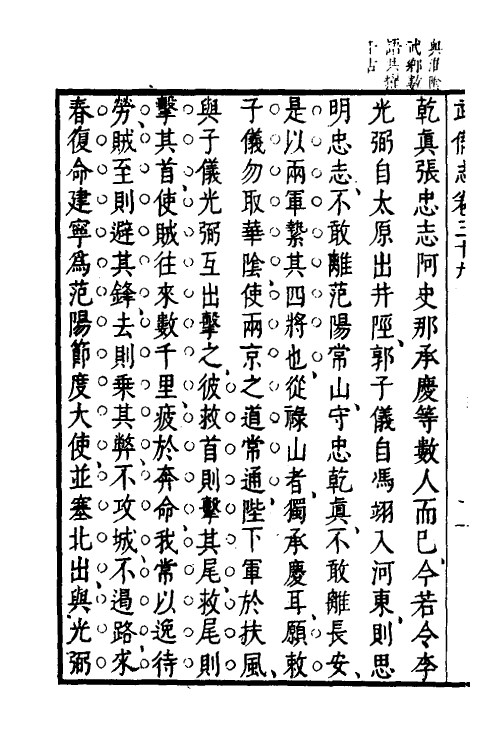 與淮陰
武鄉數
語共擅
千古
武備志卷三十九
乾真張忠志阿史那承慶等數人而已今若令李
光弼自太原出井陘郭子儀自馮翊入河東則思
明忠志不敢離范陽常山守忠乾真不敢離長安
是以兩軍縶其四將也從祿山者獨承慶耳願敕
子儀勿取華陰使兩京之道常通陛下軍於扶風
與子儀光弼互出擊之彼救首則擊其尾救尾則
擊其首使賊往來數千里疲於奔命我常以逸待
勞賊至則避其鋒去則乘其弊不攻城不遏路來
春復命建寧爲范陽節度大使並塞北出與光弼